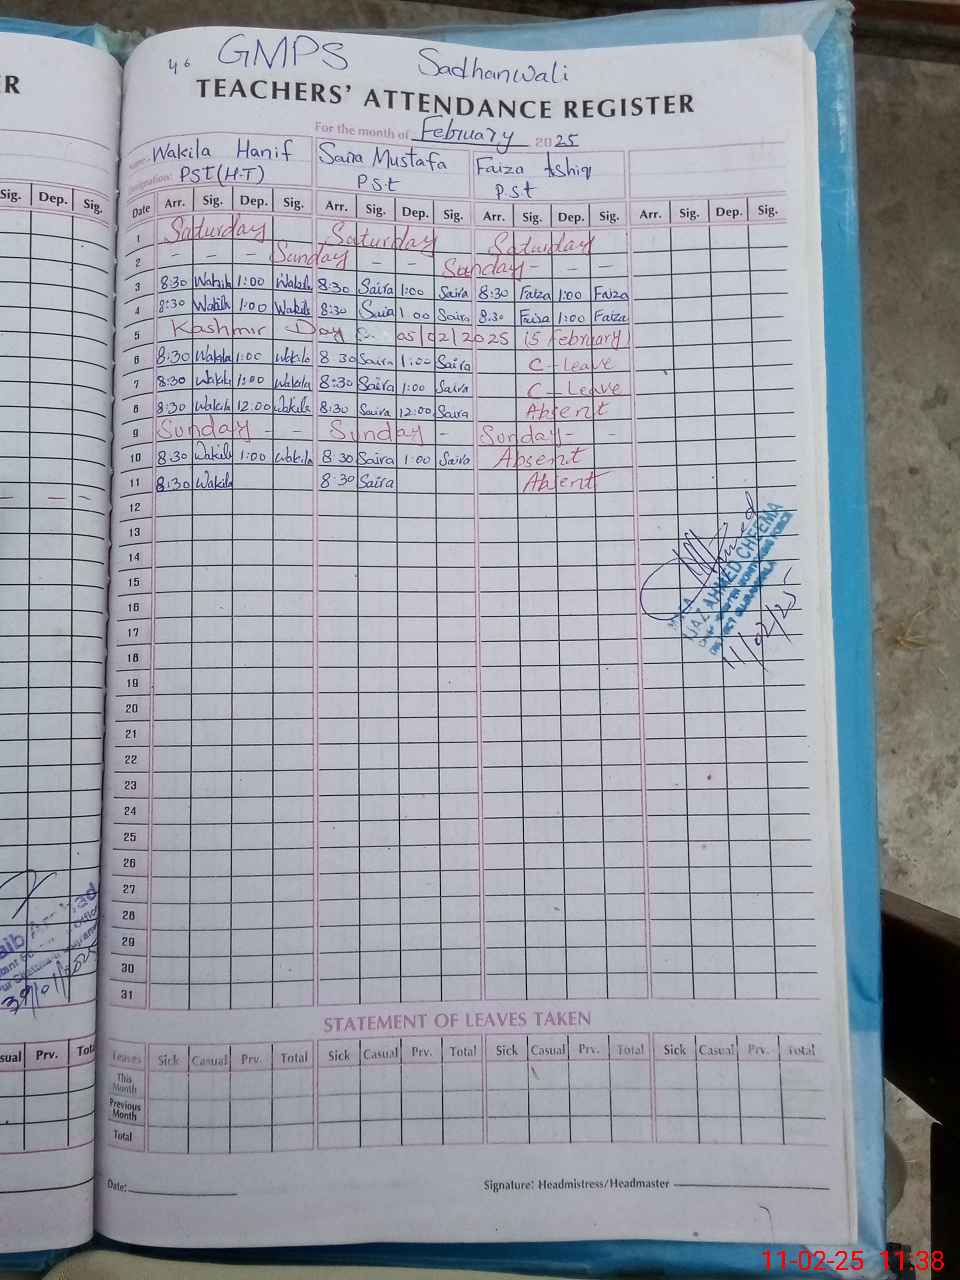 46 GMPS Sadhanwali
TEACHERS' ATTENDANCE REGISTER
For the month of February 2025
Name: Wakila Hanif Saira Mustafa Faiza Ashiq
Designation: PST(H.T) PSt P.St
Date Arr. Sig. Dep. Sig. Arr. Sig. Dep. Sig. Arr. Sig. Dep. Sig. Arr. Sig. Dep. Sig.
1 Saturday Saturday Saturday
2 - - - Sunday - - - Sunday - - -
3 8:30 Wakila 1:00 Wakila 8:30 Saira 1:00 Saira 8:30 Faiza 1:00 Faiza
4 8:30 Wakila 1:00 Wakila 8:30 Saira 1 00 Saira 8:30 Faiza 1:00 Faiza
5 Kashmir Day 05/02/2025 is February
6 8:30 Wakila 1:00 Wakila 8 30 Saira 1:00 Saira C-Leave
7 8:30 Wakila 1:00 Wakila 8:30 Saira 1:00 Saira C-Leave
8 8:30 Wakila 12:00 Wakila 8:30 Saira 12:00 Saira Absent
9 Sunday - - Sunday - Sunday - -
10 8:30 Wakila 1:00 Wakila 8:30 Saira 1:00 Saira Absent
11 8:30 Wakila 8:30 Saira Absent
12
13
14
15
16
17
18
19
20
21
22
23
24
25
26
27
28
29
30
31
MEA
IJAZ AHMED CHEEMA
11/02/25
STATEMENT OF LEAVES TAKEN
Leaves Sick Casual Prv. Total Sick Casual Prv. Total Sick Casual Prv. Total Sick Casual Prv. Total
This Month
Previous Month
Total
Date: Signature: Headmistress/Headmaster
R
Sig. Dep. Sig.
sual Prv. Total
11-02-25 11:38